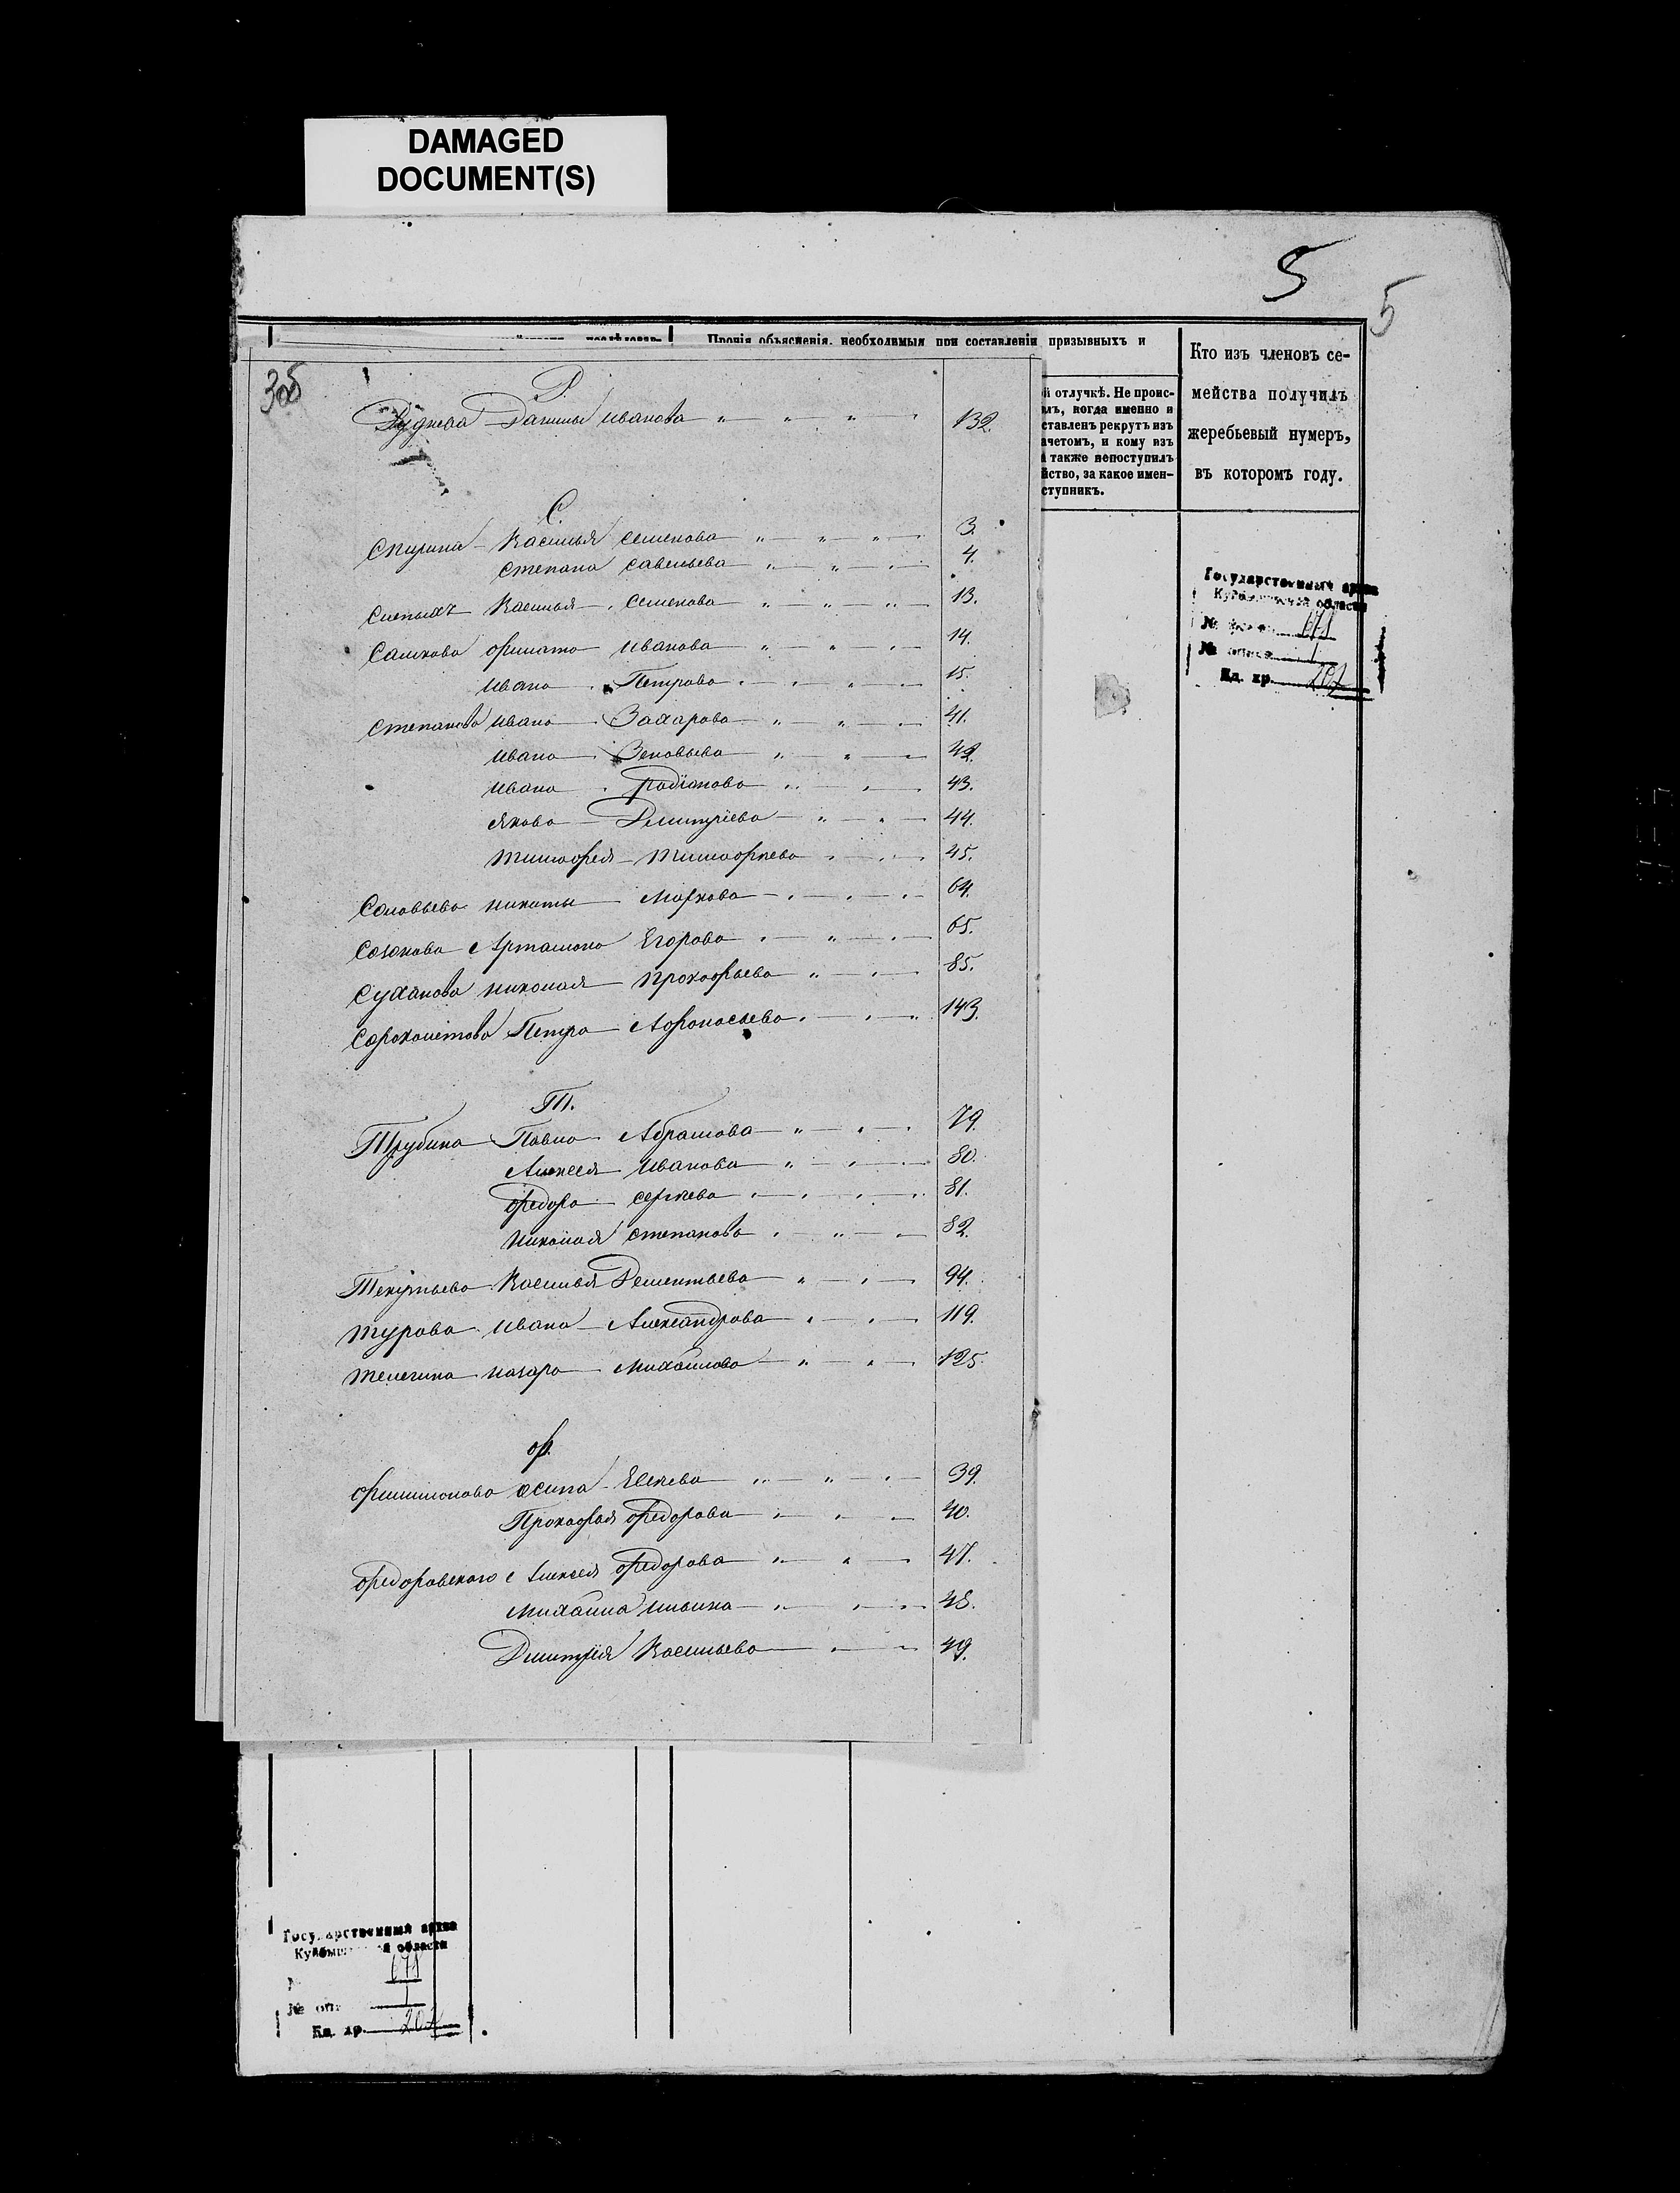 DAMAGED
DOCUMENT(S)
5
5
Прочія объясненія, необходимыя при составленіи призывныхъ и
й отлучкѣ. Не проис-
илъ, когда именно и
ставленъ рекрутъ изъ
ачетомъ, и кому изъ
а также непоступилъ
йство, за какое имен-
ступникъ.
Кто изъ членовъ се-
мейства получилъ
жеребьевый нумеръ,
въ которомъ году.
305
Р.
Руднева Данилы Иванова 132.
С.
Спирина Василья Семенова 3.
Степана Савельева 4.
Слепыхъ Василья Семенова 13.
Сашкова Филата Иванова 14.
Ивана Петрова 15.
Степанова Ивана Захарова 41.
Ивана Зеновьева 42.
Ивана Радіанова 43.
Якова Дмитріева 44.
Тимофея Тимофеева 45.
Соловьева Никиты Маркова 64.
Созонова Артамона Егорова 65.
Суханова Николая Прокофьева 85.
Сорокалетова Петра Афонасьева 143.
Т.
Трубина Павла Абрамова 79.
Алексея Иванова 80.
Федора Сергеева 81.
Николая Степанова 82.
Текутьева Василья Дементьева 94.
Турова Ивана Александрова 119.
Телегина Назара Михайлова 125.
Ф.
Филимонова Осипа Евсеева 39.
Прокофья Федорова 40.
Федоровского Алексея Федорова 47.
Михайла Ильина 48.
Дмитрія Васильева 49.
Государственный архив
Куйбышевской области
671
№ 1
Ед. хр. 202
Государственный архив
Куйбышевской области
671
№ оп. 1
Ед. хр. 202